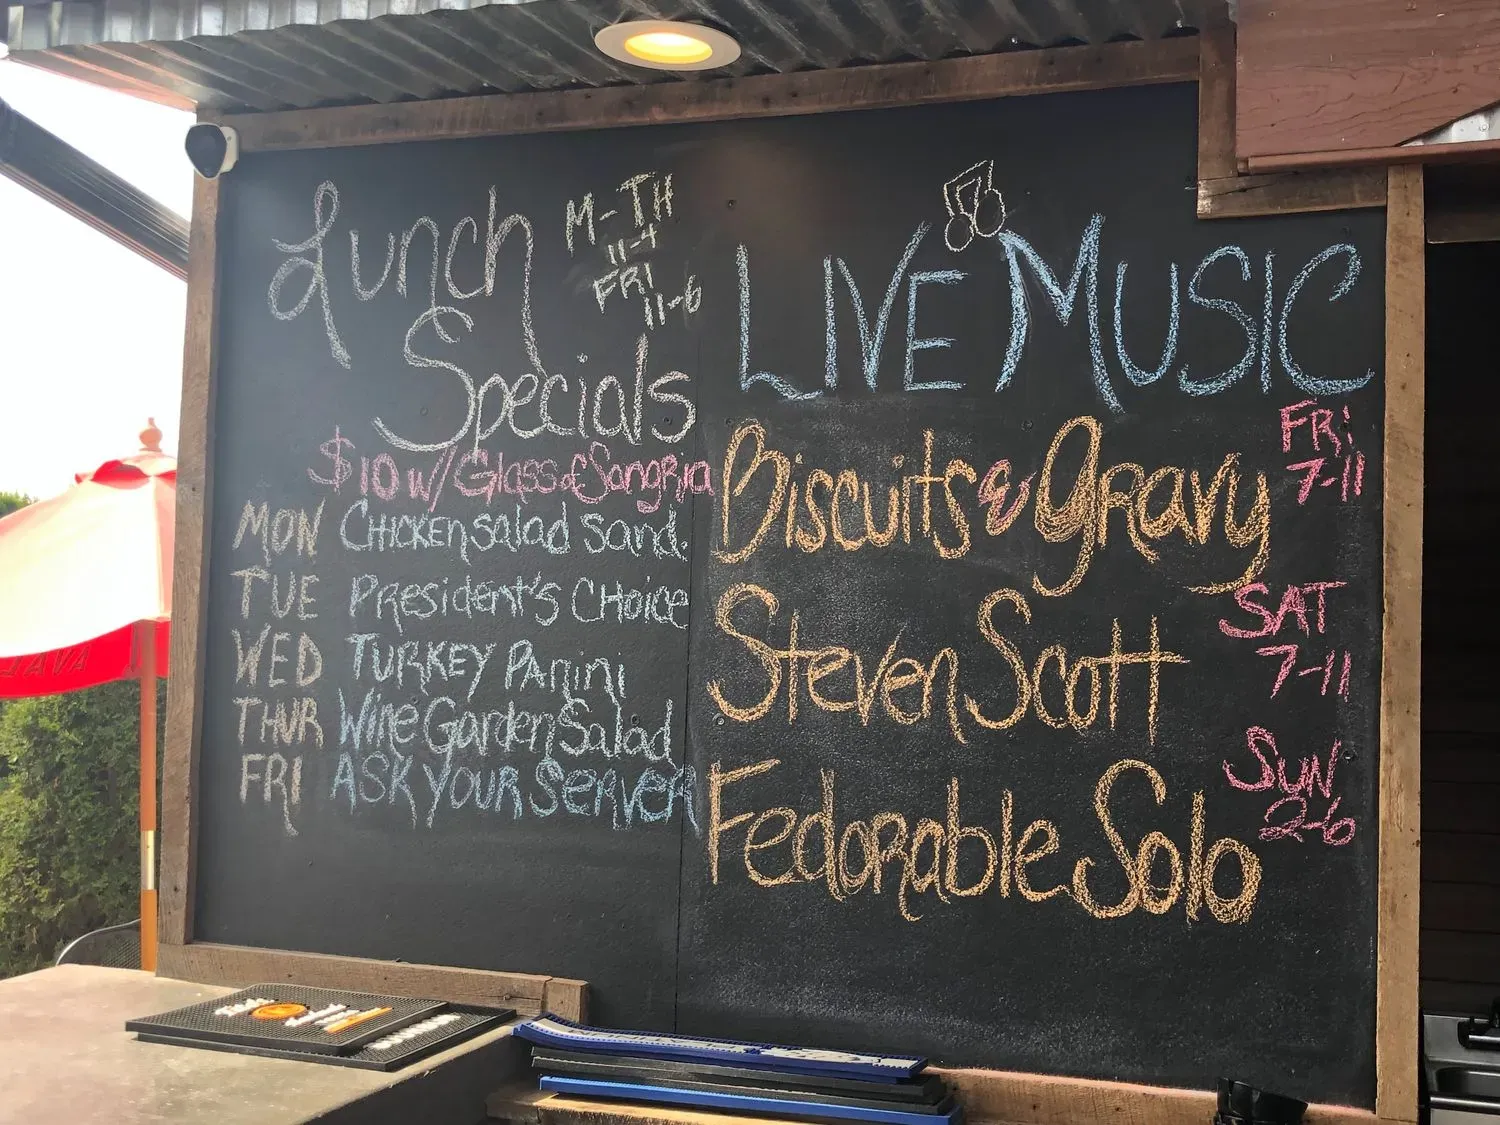 Lunch
Specials
M-TH
11-4
FRI
11-6
$10 w/ Glass of Sangria
MON Chicken salad sand.
TUE President's Choice
WED TURKEY Panini
THUR Wine Garden Salad
FRI ASK YOUR SERVER
LIVE MUSIC
Biscuits & Gravy
FRI
7-11
Steven Scott
SAT
7-11
Fedorable Solo
SUN
2-6